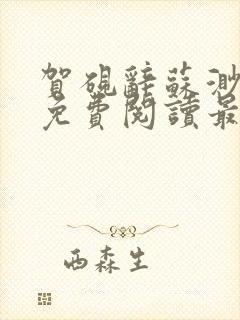 賀硯辭蘇渺
免費閱讀最
西森生